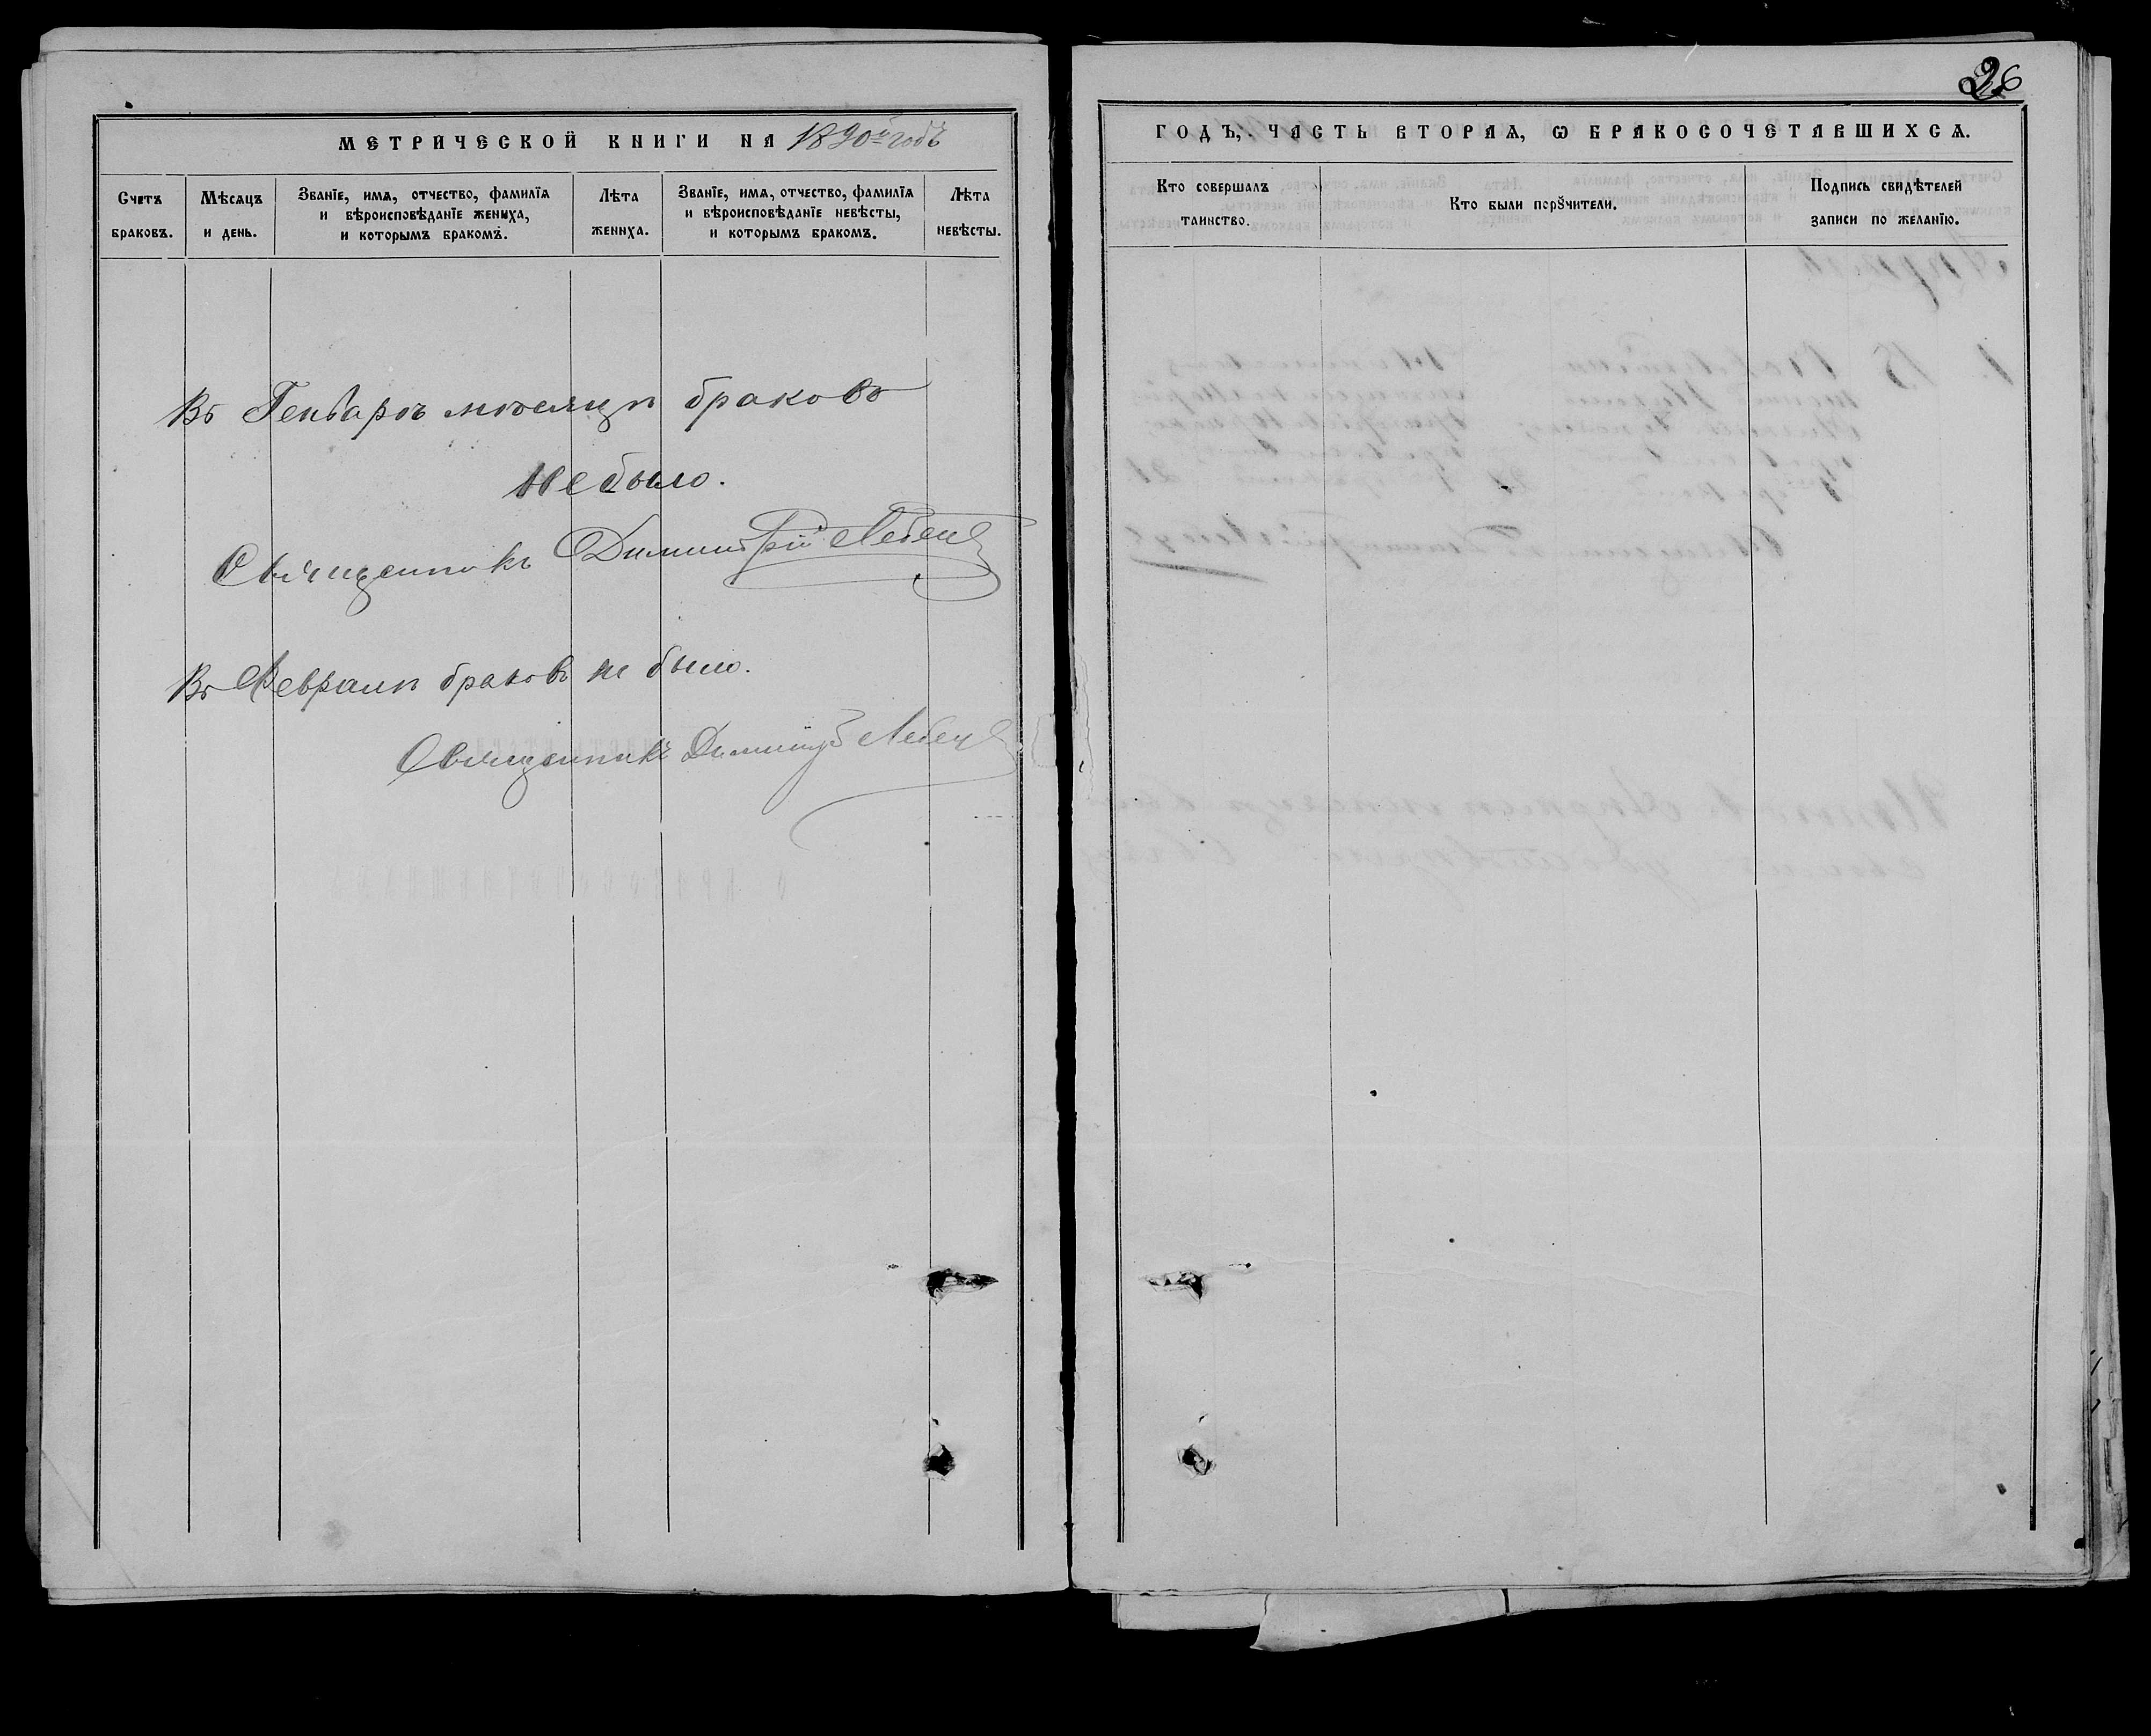 МЕТРИЧЕСКОЙ КНИГИ НА 1890й годъ
Счетъ браковъ.
Мѣсяцъ и день.
Званіе, имя, отчество, фамилія
и вѣроисповѣданіе жениха,
и которымъ бракомъ.
Лѣта жениха.
Званіе, имя, отчество, фамилія
и вѣроисповѣданіе невѣсты,
и которымъ бракомъ.
Лѣта невѣсты.
Въ Генварѣ мѣсяцѣ браковъ
не было.
Священникъ Димитрій
Въ Февралѣ браковъ не было.
Священникъ Димитрій
26
ГОДЪ, ЧАСТЬ ВТОРАЯ, Ѡ БРАКОСОЧЕТАВШИХСЯ.
Кто совершалъ
таинство.
Кто были порꙋчители.
Подпись свидѣтелей
записи по желанію.